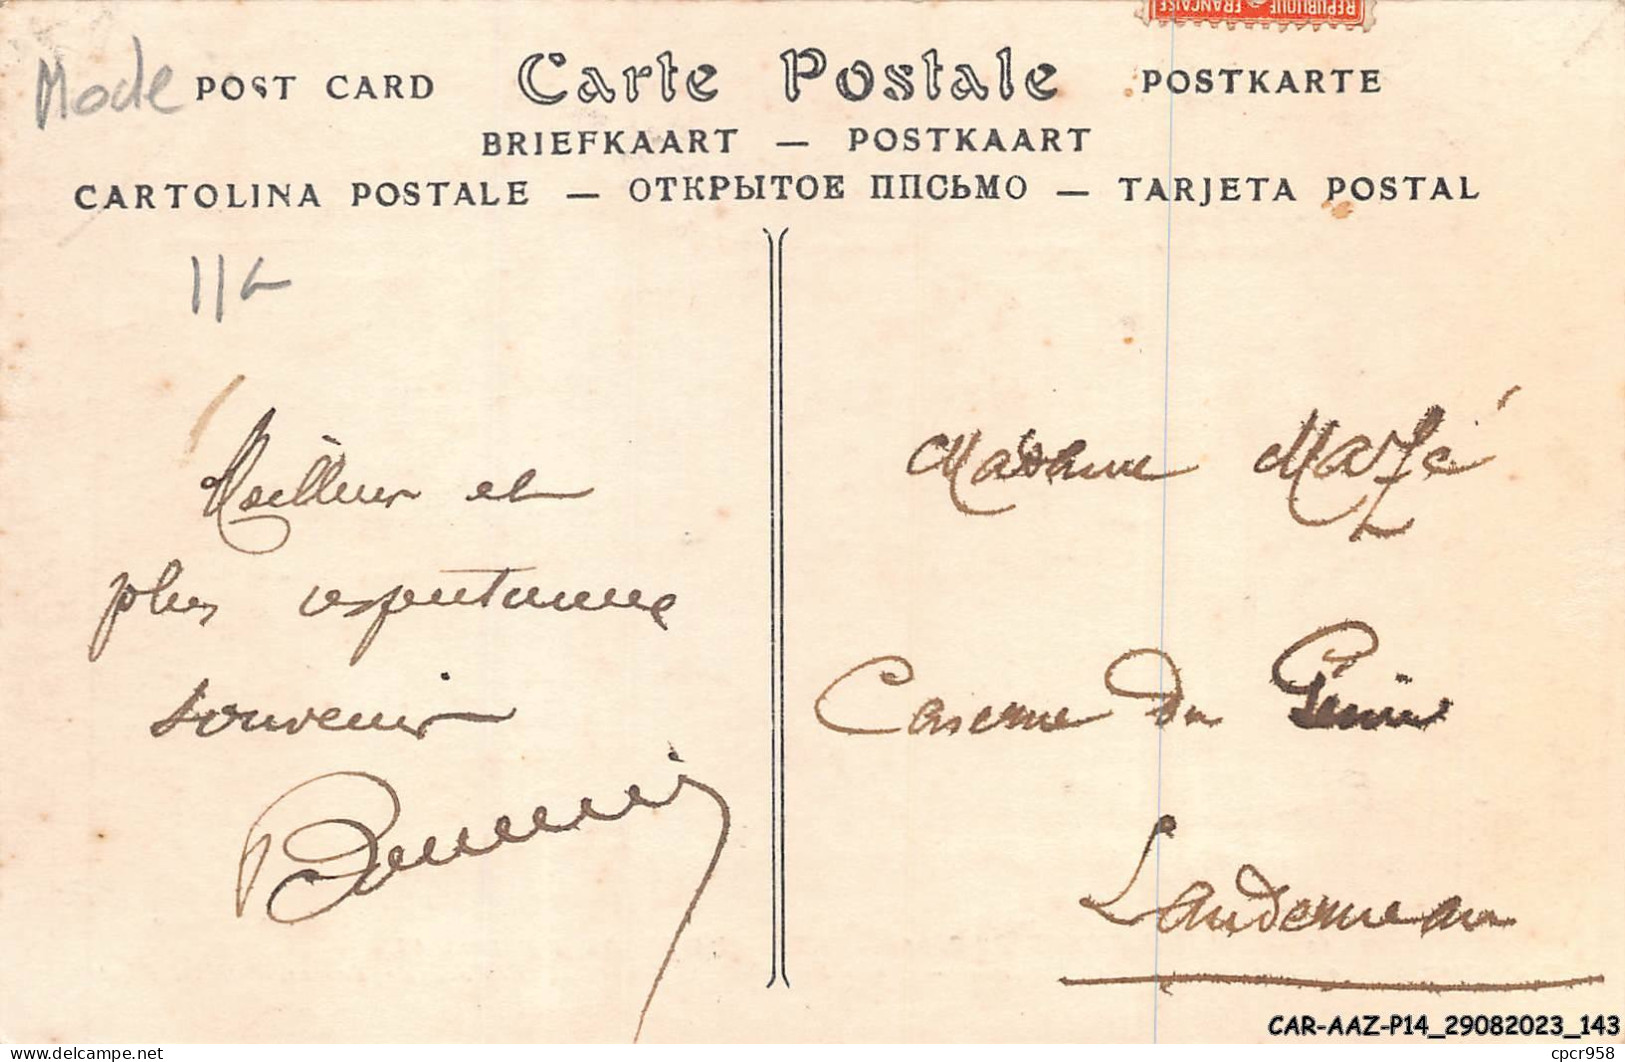 REPUBLIQUE FRANÇAISE
Mode
POST CARD Carte Postale POSTKARTE
BRIEFKAART — POSTKAART
CARTOLINA POSTALE — ОТКРЫТОЕ ППСЬМО — TARJETA POSTAL
Meilleur et
plus respectueux
souvenir
Madame Mazé
Caserne du Génie
Landerneau
CAR-AAZ-P14_29082023_143
delcampe.net
cpcr958